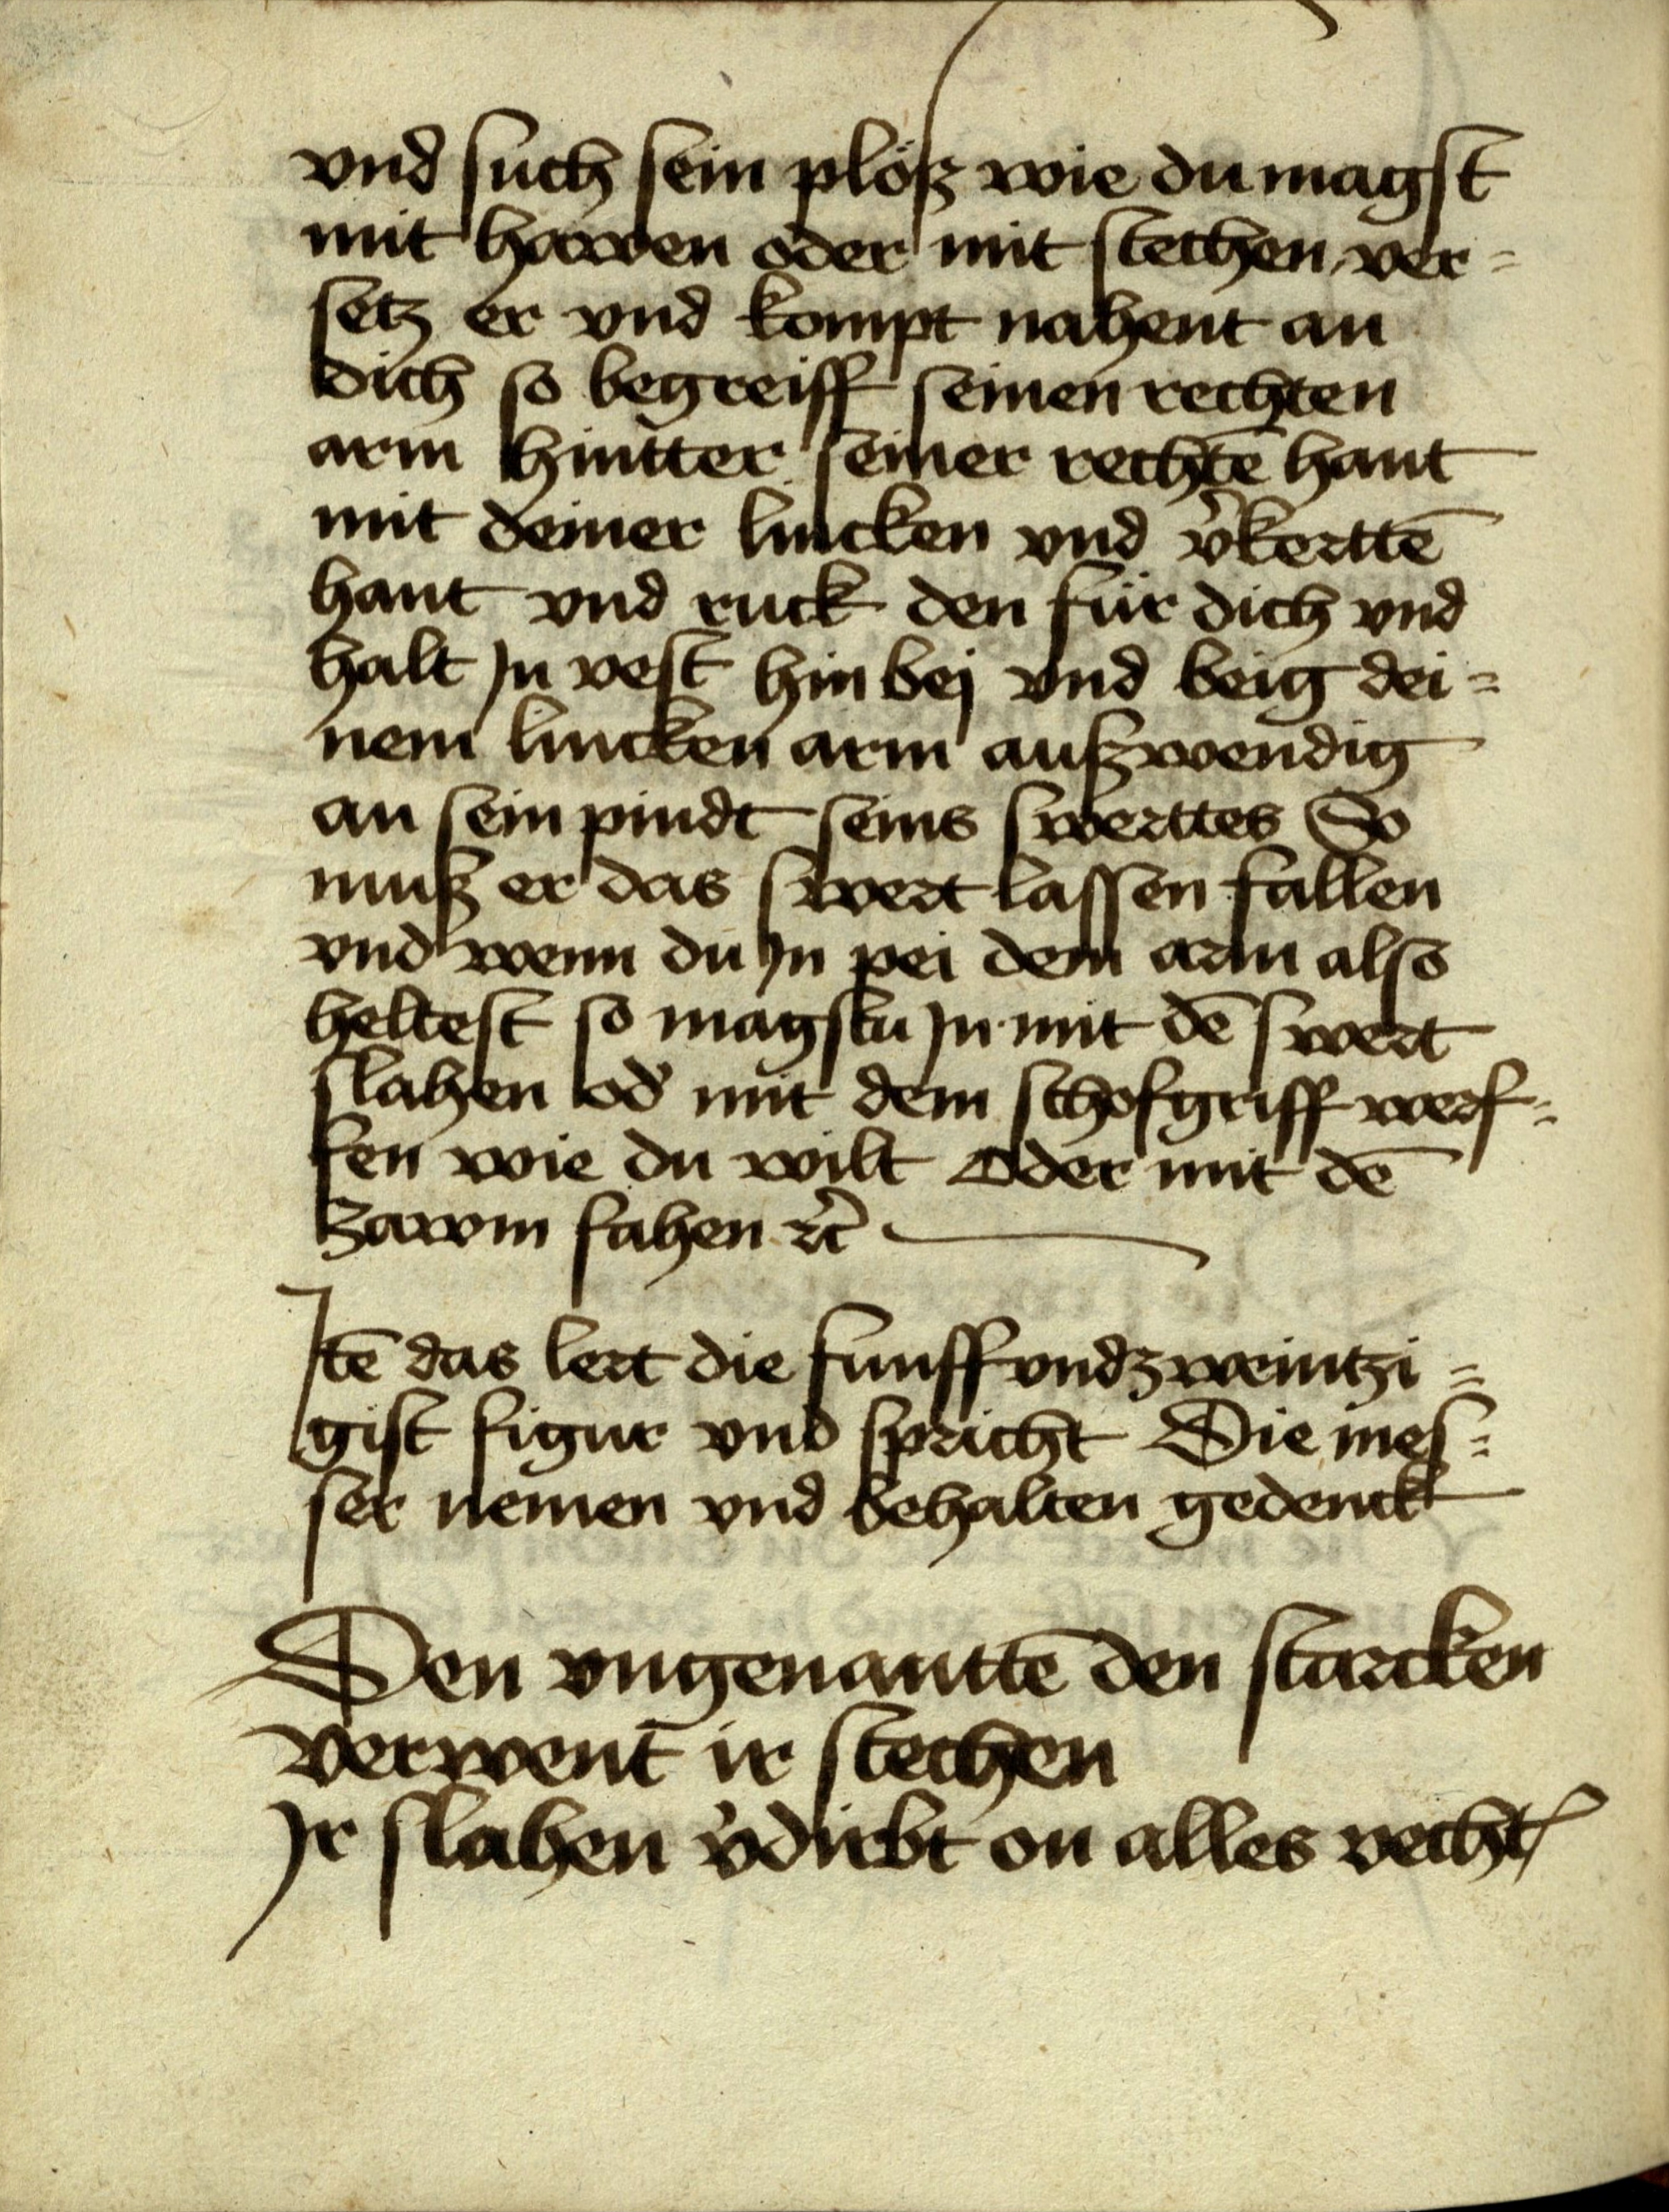 vnd such sein plösz wie du magst
mit hawen oder mit stechen, ver=
setz er vnd kompt nahent an
dich so begreiff seinen rechten
arm hintter seiner rechtē hant
mit deiner lincken vnd v̉kerttē
hant vnd ruck den für dich vnd
halt jn vest hin bej vnd beig dei=
nem lincken arm auszwendig
an sein pindt seins swerttes So
musz er das swert lassen fallen
vnd wenn du jn pei dem arm also
heltest so magstu jn mit dē swert
slahen od̉ mit dem schofgriff werf=
fen wie du wilt Oder mit dē
zawm fahen ⁊c̉
Jtē das lert die funff vnd zweintzi=
gist figur vnd spricht Die mes=
ser nemen vnd behalten gedenck
Den vngenanttē den starcken
verwent ir stechen
Jr slahen v̉dirbt on alles vecht